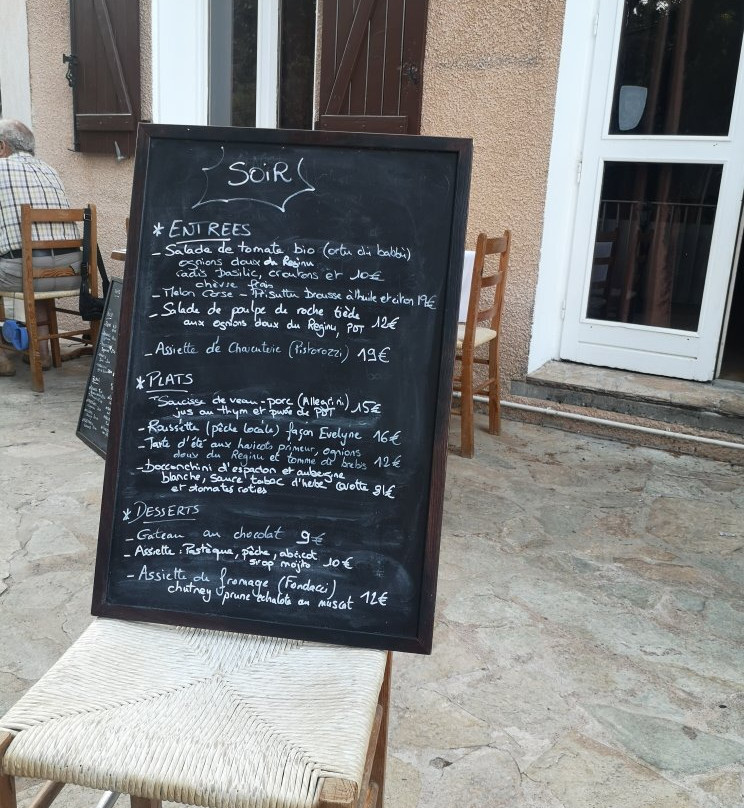 SOIR
* ENTREES
- Salade de tomate bio (ortu di babbù)
ognions doux du Reginu
radis basilic, croutons et 10€
chèvre frais
- Melon Corse - Prisuttu Brousse à l'huile et citron 19€
- Salade de poulpe de roche tiède
aux ognions doux du Reginu, PDT 12€
- Assiette de Charcuterie (Pistorozzi) 19€
* PLATS
- Saucisse de veau-porc (Allegrini) 15€
jus au thym et purée de PDT
- Roussette (pêche locale) façon Evelyne 16€
- Tarte d'été aux haricots primeur, ognions
doux du Reginu et tomme de brebis 12€
- Bocconchini d'espadon et aubergine
blanche, sauce tabac d'herbe
et tomates roties
* DESSERTS
- Gateau au chocolat 9€
- Assiette : Pastèque, pêche, abricot
sirop mojito 10€
- Assiette de fromage (Fondacci)
chutney prune échalote au muscat 12€